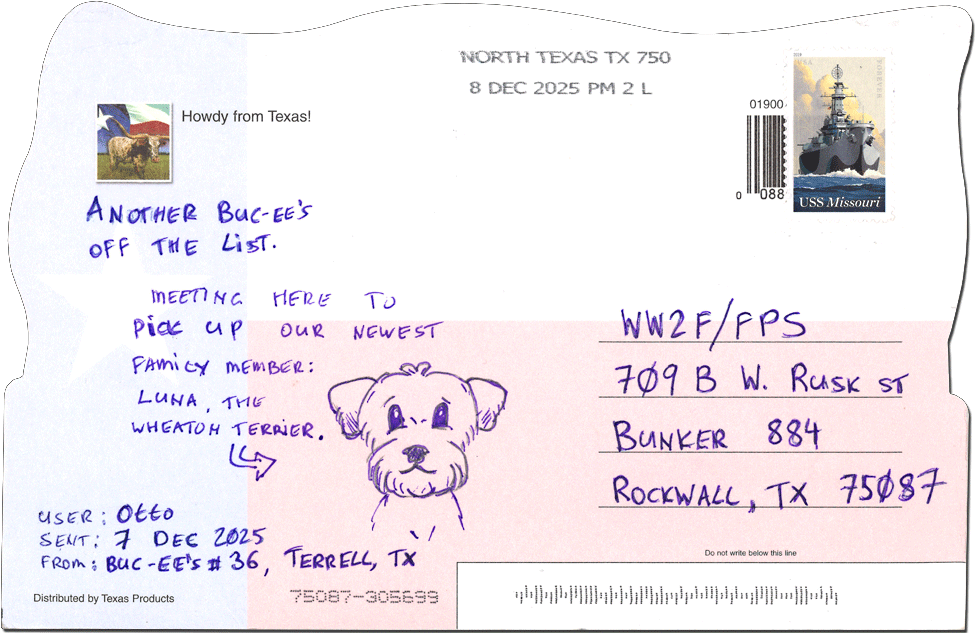 NORTH TEXAS TX 750
8 DEC 2025 PM 2 L
USA
FOREVER
01900
0 088
USS Missouri
Howdy from Texas!
ANOTHER BUC-EE'S
OFF THE LIST.
MEETING HERE TO
PICK UP OUR NEWEST
FAMILY MEMBER:
LUNA, THE
WHEATON TERRIER.
WW2F/FPS
709 B W. RUSK ST
BUNKER 884
ROCKWALL, TX 75087
USER: OTTO
SENT: 7 DEC 2025
FROM: BUC-EE'S # 36, TERRELL, TX
Do not write below this line
Distributed by Texas Products
75087-305699